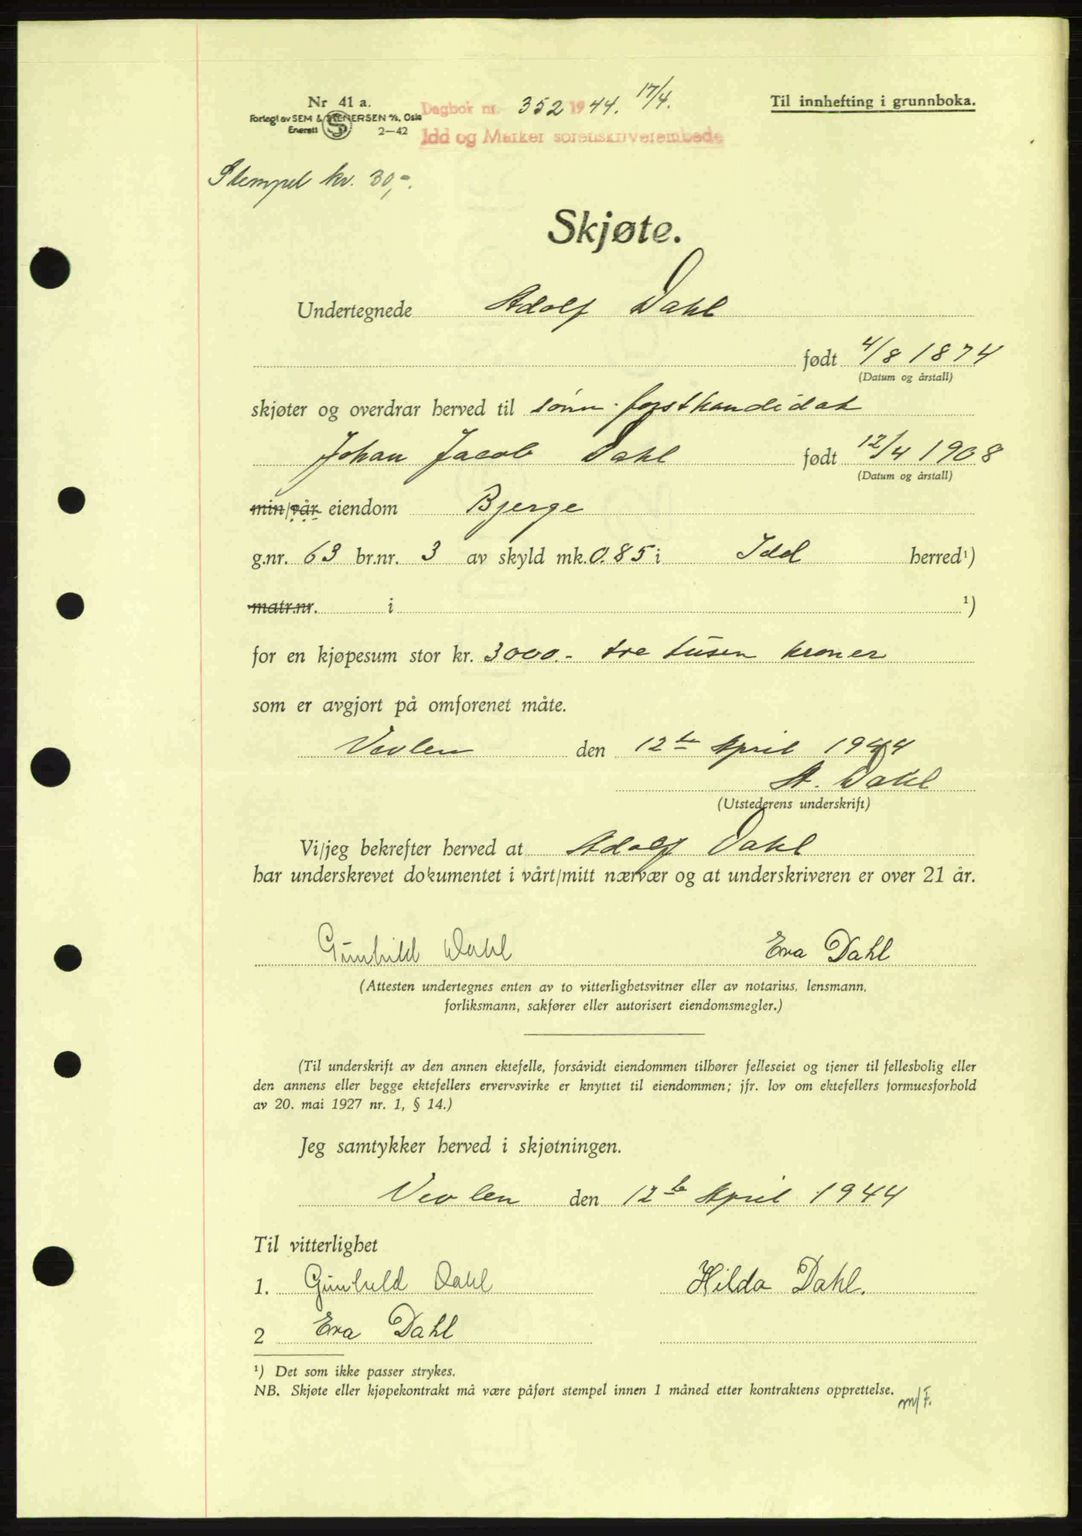 Nr 41 a.
Forlagt av SEM & STENERSEN A/S, Oslo
Enerett S 2-42
Dagbok nr. 352 1944. 17/4.
Idd og Marker sorenskriverembede
Til innhefting i grunnboka.
Stempel kr. 30,-.
Skjøte.
Undertegnede Adolf Dahl
født 4/8 1874
(Datum og årstall)
skjøter og overdrar herved til sønn forstkandidat
Johan Jacob Dahl født 12/4 1908
(Datum og årstall)
min/vår eiendom Bjerge
g.nr. 63 br.nr. 3 av skyld mk. 0.85 i Idd herred¹)
matr.nr. i ¹)
for en kjøpesum stor kr. 3000.- tre tusen kroner
som er avgjort på omforenet måte.
Vevlen den 12te April 1944
A. Dahl
(Utstederens underskrift)
Vi/jeg bekrefter herved at Adolf Dahl
har underskrevet dokumentet i vårt/mitt nærvær og at underskriveren er over 21 år.
Gunhild Dahl Eva Dahl
(Attesten undertegnes enten av to vitterlighetsvitner eller av notarius, lensmann,
forliksmann, sakfører eller autorisert eiendomsmegler.)
(Til underskrift av den annen ektefelle, forsåvidt eiendommen tilhører felleseiet og tjener til fellesbolig eller
den annens eller begge ektefellers ervervsvirke er knyttet til eiendommen; jfr. lov om ektefellers formuesforhold
av 20. mai 1927 nr. 1, § 14.)
Jeg samtykker herved i skjøtningen.
Vevlen den 12te April 1944
Til vitterlighet
1. Gunhild Dahl Hilda Dahl.
2 Eva Dahl
¹) Det som ikke passer strykes.
NB. Skjøte eller kjøpekontrakt må være påført stempel innen 1 måned etter kontraktens opprettelse.
m/F.